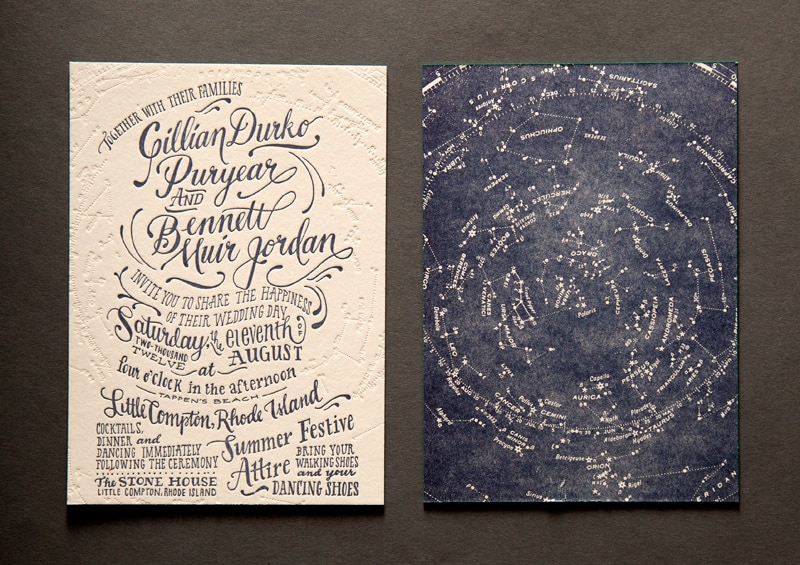 TOGETHER WITH THEIR FAMILIES
Gillian Durko
Puryear
AND
Bennett
Muir Jordan
INVITE YOU TO SHARE THE HAPPINESS
OF THEIR WEDDING DAY
Saturday, the eleventh OF
TWO-THOUSAND
TWELVE at AUGUST
four o'clock in the afternoon
TAPPEN'S BEACH
Little Compton, Rhode Island
COCKTAILS,
DINNER and
DANCING IMMEDIATELY
FOLLOWING THE CEREMONY
THE STONE HOUSE
LITTLE COMPTON, RHODE ISLAND
Summer Festive
Attire
BRING YOUR
WALKING SHOES
and your
DANCING SHOES
SAGITTARIUS
SCORPIUS
OPHIUCHUS
LIBRA
AQUILA
CAPRICORNUS
HERCULES
CYGNUS
BOOTES
DRACO
PEGASUS
VIRGO
CEPHEUS
CASSIOPEIA
ANDROMEDA
Polaris
LEO
Capella
AURIGA
CANCER
GEMINI
Betelgeuse
ORION
Rigel
Sirius
ERIDANUS